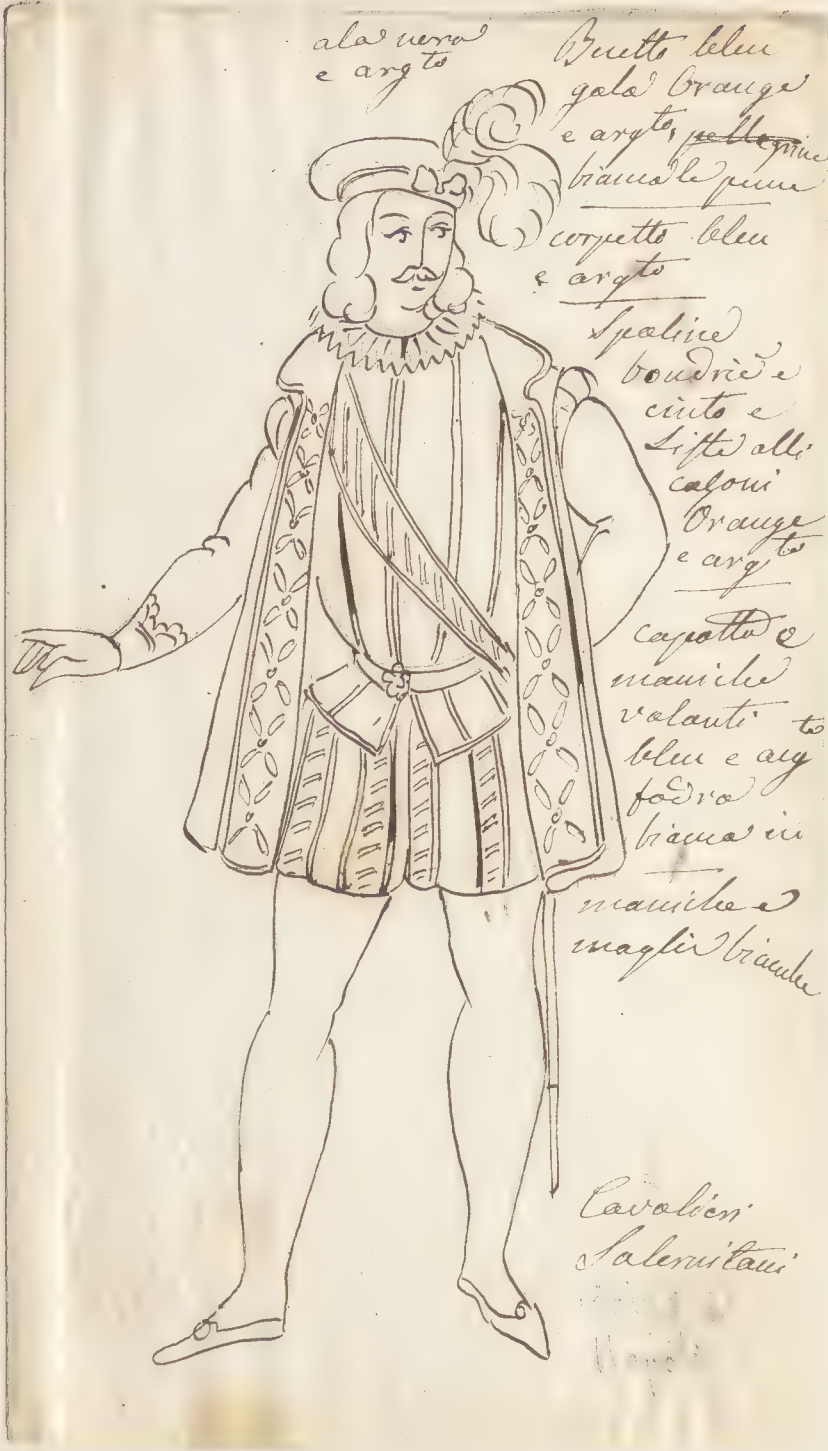 ala nera
e argto
Buetto bleu
gala Orange
e argto, pellegrine
bianca le piume
corpetto bleu
e argto
Spaline
boudriè e
cinto e
Liste alli
calzoni
Orange
e argto
capotto e
maniche
volanti
bleu e argto
fodra
bianca in
maniche e
maglie bianche
Cavalieri
Salernitani